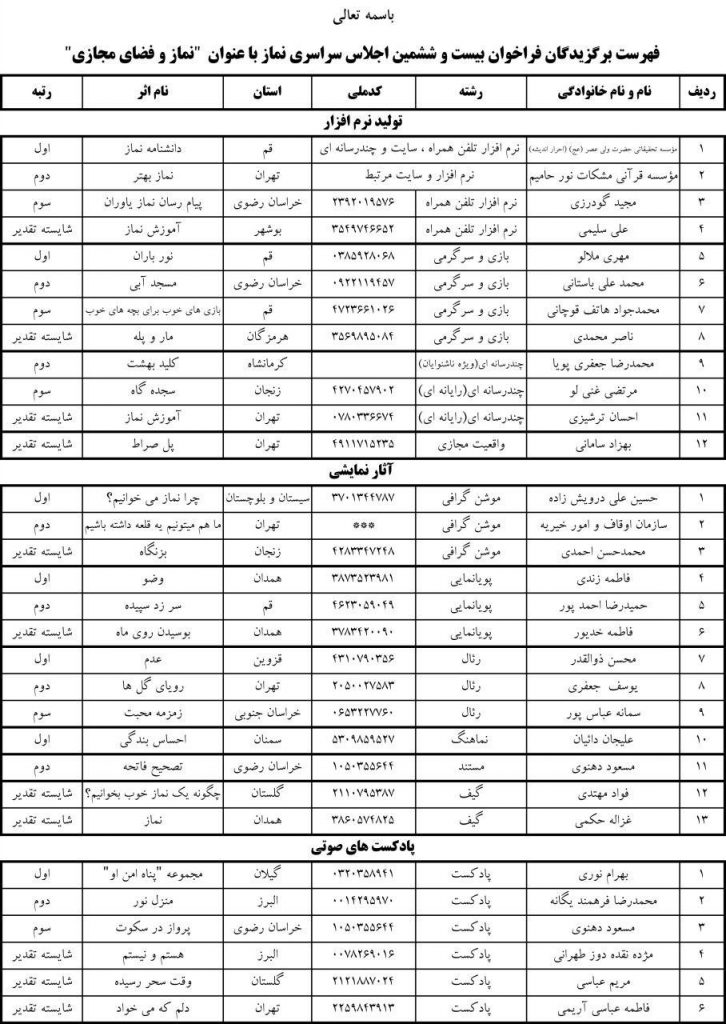 باسمه تعالی
فهرست برگزیدگان فراخوان بیست و ششمین اجلاس سراسری نماز با عنوان "نماز و فضای مجازی"
ردیف نام و نام خانوادگی رشته کدملی استان نام اثر رتبه
تولید نرم افزار
۱ مؤسسه تحقیقاتی حضرت ولی عصر (عج) (احرار اندیشه) نرم افزار تلفن همراه ، سایت و چندرسانه ای قم دانشنامه نماز اول
۲ مؤسسه قرآنی مشکات نور حامیم نرم افزار و سایت مرتبط تهران نماز بهتر دوم
۳ مجید گودرزی نرم افزار تلفن همراه ۲۳۹۲۰۱۹۵۷۶ خراسان رضوی پیام رسان نماز یاوران سوم
۴ علی سلیمی نرم افزار تلفن همراه ۳۵۴۹۷۴۶۶۵۲ بوشهر آموزش نماز شایسته تقدیر
۵ مهری ملالو بازی و سرگرمی ۰۳۸۵۹۲۸۰۶۸ قم نور باران اول
۶ محمد علی باستانی بازی و سرگرمی ۰۹۲۲۱۱۹۴۵۷ خراسان رضوی مسجد آبی دوم
۷ محمدجواد هاتف قوچانی بازی و سرگرمی ۴۷۲۳۶۶۱۰۲۶ قم بازی های خوب برای بچه های خوب سوم
۸ ناصر محمدی بازی و سرگرمی ۳۵۶۹۸۹۵۰۸۴ هرمزگان مار و پله شایسته تقدیر
۹ محمدرضا جعفری پویا چندرسانه ای(ویژه ناشنوایان) کرمانشاه کلید بهشت دوم
۱۰ مرتضی غنی لو چندرسانه ای(رایانه ای) ۴۲۷۰۴۵۷۹۰۲ زنجان سجده گاه سوم
۱۱ احسان ترشیزی چندرسانه ای(رایانه ای) ۰۷۸۰۳۳۶۶۷۴ تهران آموزش نماز شایسته تقدیر
۱۲ بهزاد سامانی واقعیت مجازی ۴۹۱۱۷۱۵۲۳۵ تهران پل صراط شایسته تقدیر
آثار نمایشی
۱ حسین علی درویش زاده موشن گرافی ۳۷۰۱۳۴۴۷۸۷ سیستان و بلوچستان چرا نماز می خوانیم؟ اول
۲ سازمان اوقاف و امور خیریه موشن گرافی *** تهران ما هم میتونیم یه قلعه داشته باشیم دوم
۳ محمدحسن احمدی موشن گرافی ۴۲۸۳۳۴۷۲۴۸ زنجان بزنگاه شایسته تقدیر
۴ فاطمه زندی پویانمایی ۳۸۷۳۵۲۳۹۸۱ همدان وضو اول
۵ حمیدرضا احمد پور پویانمایی ۴۶۲۳۰۵۹۰۴۹ قم سر زد سپیده دوم
۶ فاطمه خدیور پویانمایی ۳۷۸۳۴۲۰۰۹۰ همدان بوسیدن روی ماه شایسته تقدیر
۷ محسن ذوالقدر رئال ۴۳۱۰۷۹۰۳۵۶ قزوین عدم اول
۸ یوسف جعفری رئال ۲۰۵۰۰۲۷۵۸۳ تهران رویای گل ها دوم
۹ سمانه عباس پور رئال ۰۶۵۳۲۲۷۷۶۰ خراسان جنوبی زمزمه محبت سوم
۱۰ علیجان دائیان نماهنگ ۵۳۰۹۸۵۹۵۲۷ سمنان احساس بندگی اول
۱۱ مسعود دهنوی مستند ۱۰۵۰۳۵۵۶۴۴ خراسان رضوی تصحیح فاتحه دوم
۱۲ فواد مهتدی گیف ۲۱۱۰۷۹۵۳۸۷ گلستان چگونه یک نماز خوب بخوانیم؟ شایسته تقدیر
۱۳ غزاله حکمی گیف ۳۸۶۰۵۷۴۸۲۵ همدان نماز شایسته تقدیر
پادکست های صوتی
۱ بهرام نوری پادکست ۰۳۲۰۳۵۸۹۴۱ گیلان مجموعه "پناه امن او" اول
۲ محمدرضا فرهمند یگانه پادکست ۰۰۱۴۲۹۵۹۷۰ البرز منزل نور دوم
۳ مسعود دهنوی پادکست ۱۰۵۰۳۵۵۶۴۴ خراسان رضوی پرواز در سکوت سوم
۴ مژده نقده دوز طهرانی پادکست ۰۰۷۸۲۶۹۰۱۶ البرز هستم و نیستم شایسته تقدیر
۵ مریم عباسی پادکست ۲۱۲۱۸۸۷۰۲۴ گلستان وقت سحر رسیده شایسته تقدیر
۶ فاطمه عباسی آریمی پادکست ۲۲۵۹۸۴۳۹۱۳ تهران دلم که می خواد شایسته تقدیر